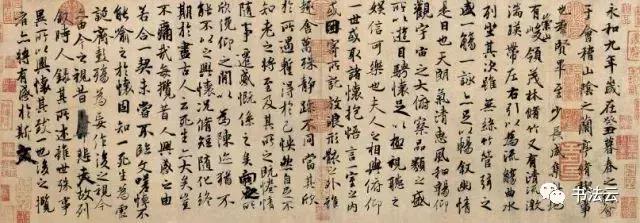 永和九年歲在癸丑暮春之初會
于會稽山陰之蘭亭脩稧事
也羣賢畢至少長咸集此地
有崇山峻領茂林脩竹又有清流激
湍暎帶左右引以為流觴曲水
列坐其次雖無絲竹管弦之
盛一觴一詠亦足以暢敘幽情
是日也天朗氣清惠風和暢仰
觀宇宙之大俯察品類之盛
所以遊目騁懷足以極視聽之
娛信可樂也夫人之相與俯仰
一世或取諸懷抱悟言一室之內
或因寄所託放浪形骸之外雖
趣舍萬殊靜躁不同當其欣
於所遇蹔得於己怏然自足不
知老之將至及其所之既惓情
隨事遷感慨係之矣向之所
欣俛仰之間以為陳迹猶不
能不以之興懷況脩短隨化終
期於盡古人云死生亦大矣豈
不痛哉每攬昔人興感之由
若合一契未嘗不臨文嗟悼不
能喻之於懷固知一死生為虛
誕齊彭殤為妄作後之視今
亦由今之視昔悲夫故列
敘時人錄其所述雖世殊事
異所以興懷其致一也後之攬
者亦將有感於斯文
书法云